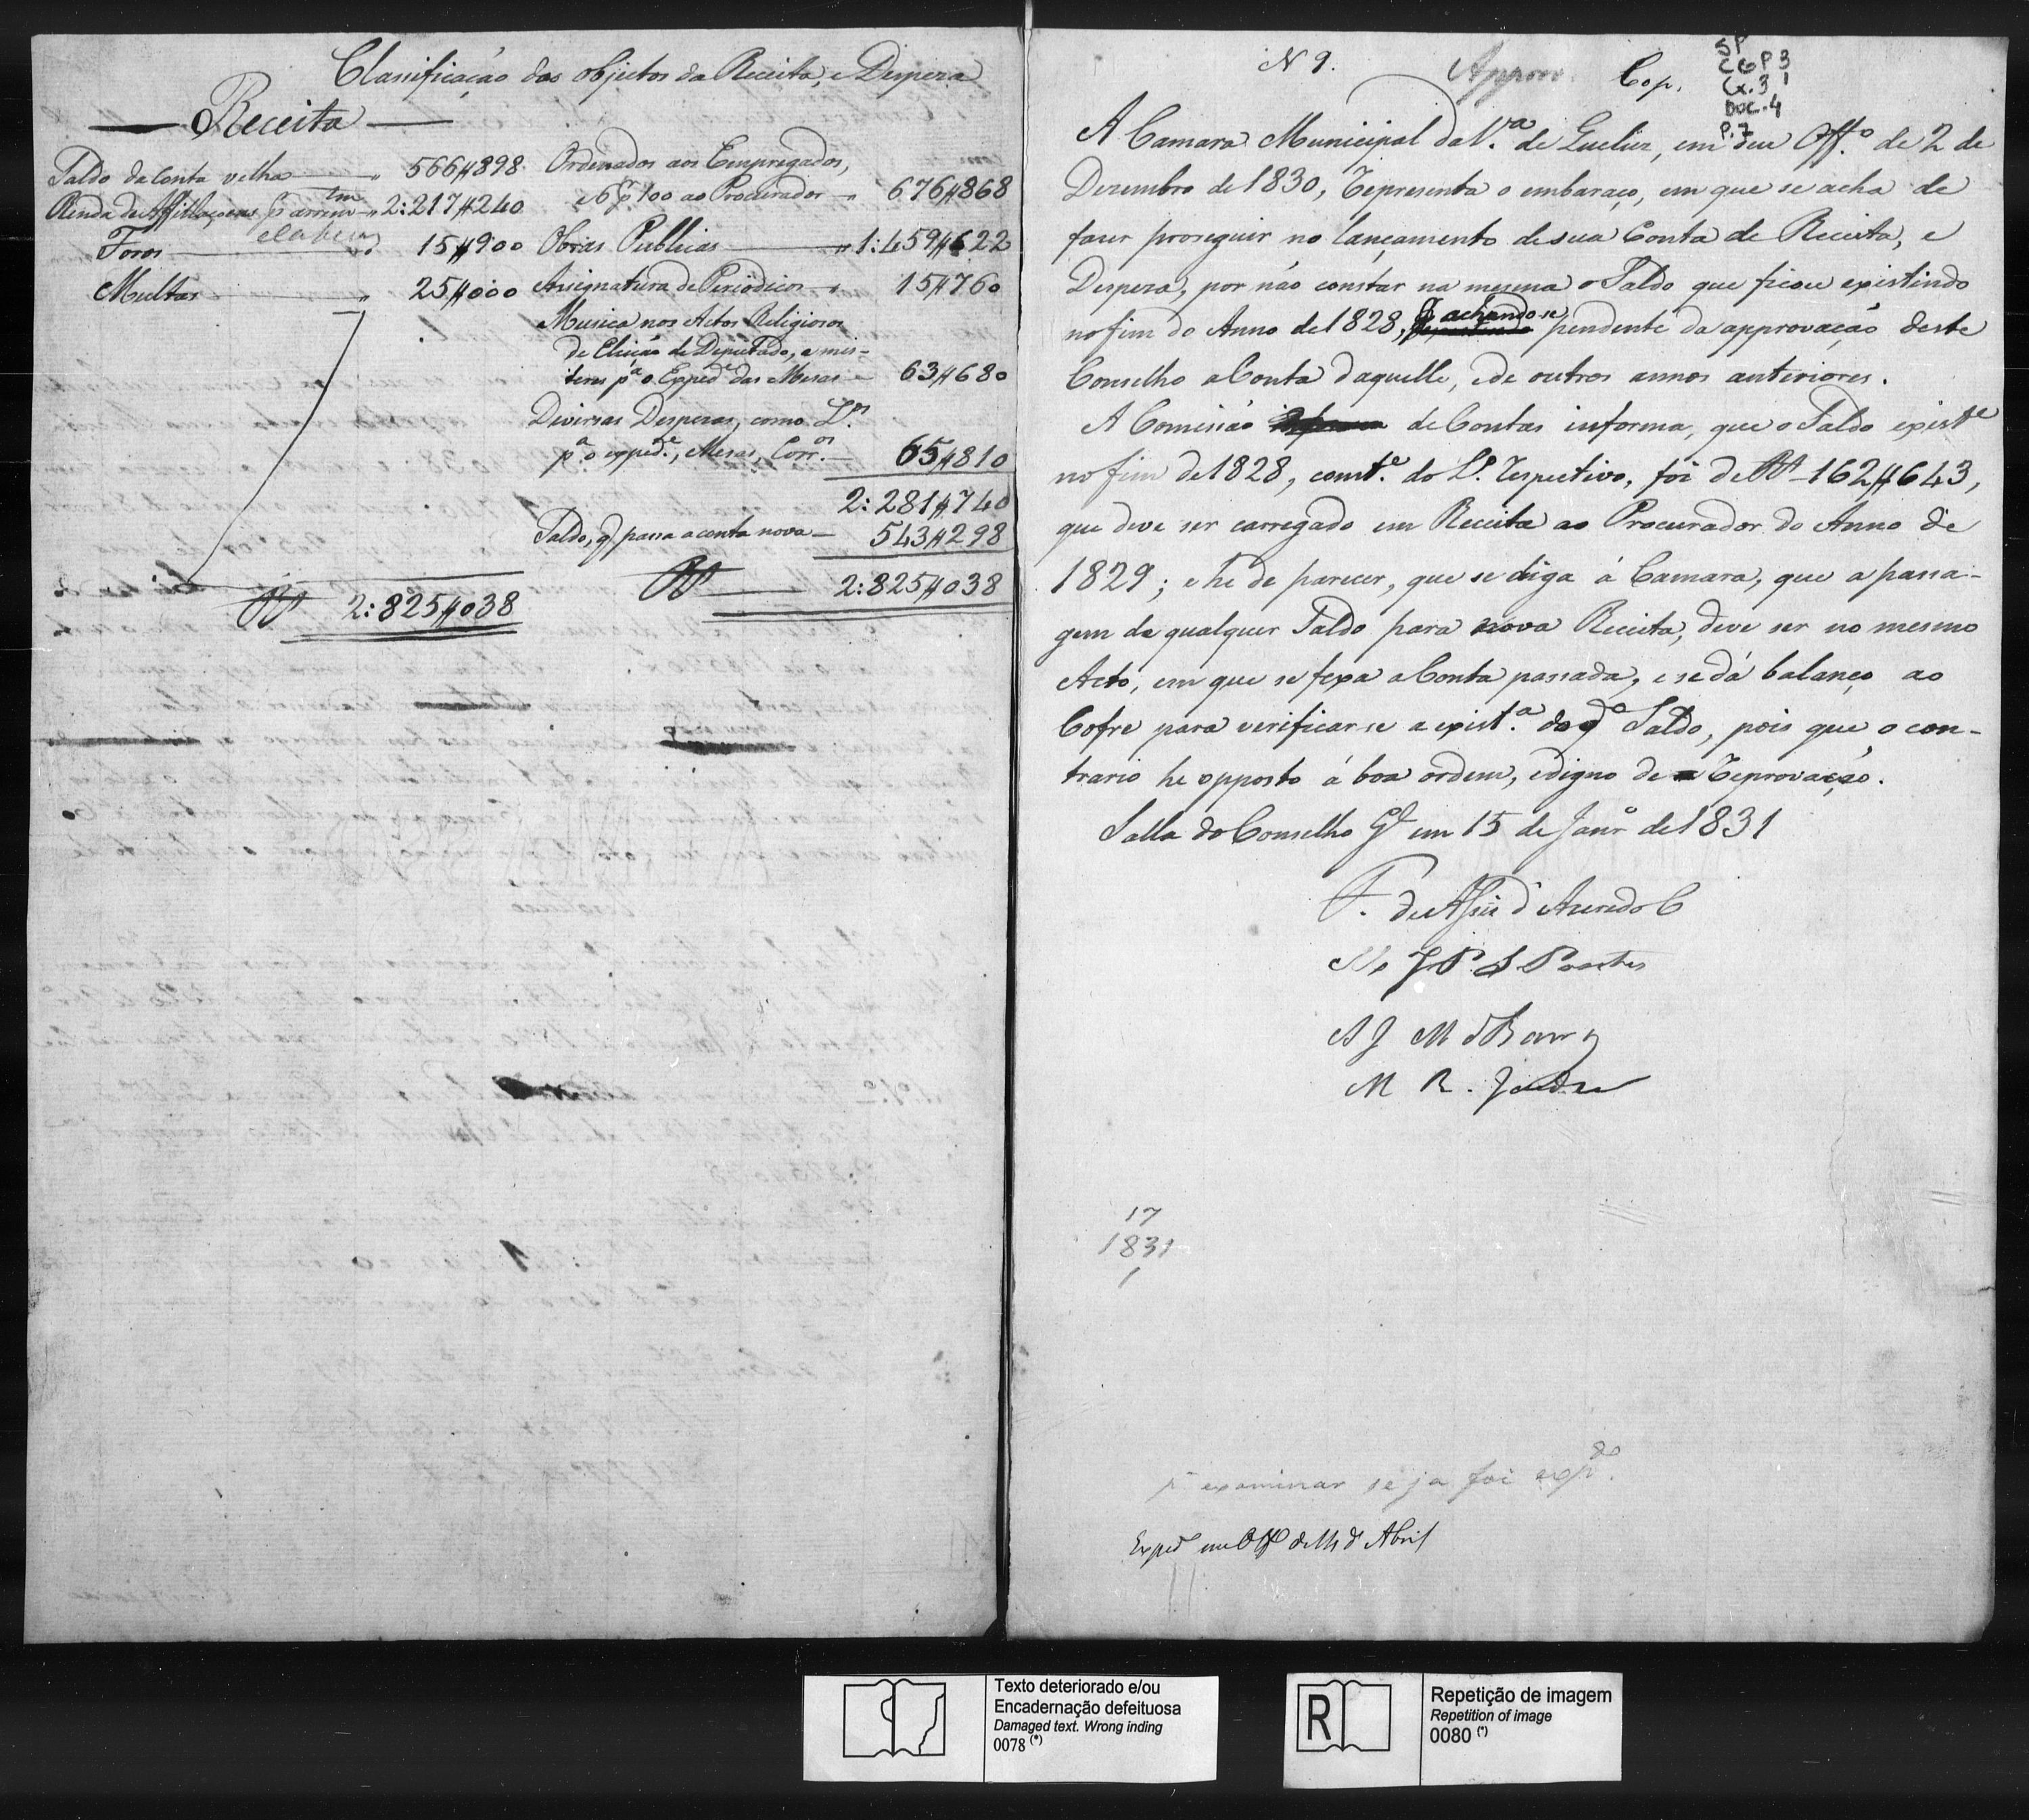 Classificação dos objectos da Receita, e Despeza
Receita
Saldo da Conta velha 566$898
Renda de Affillaçoens pr arrem.tm 2:217$240
e Cabeças
Foros 15$900
Multas 25$000
Rs 2:825$038
Ordenados aos Empregados,
e 6 pr 100 ao Procurador 676$868
Obras Publicas 1:459$622
Assignatura de Periodicos 15$760
Musica nos Actos Religiosos
de Eleição de Deputado, e mis-
teres pa o Exped.e das Mesas 63$680
Diversas Despezas, como L.os
pa o exped.e, Mesas, Corr.os 65$810
2:281$740
Saldo, q passa a conta nova 543$298
Rs 2:825$038
N 9. Approv. Cop.
SP
CGP3
Cx.31
Doc.4
P.7
A Camara Municipal da V.a de Queluz, em seu Off.o de 2 de
Dezembro de 1830, representa o embaraço, em que se acha de
fazer proseguir no lançamento de sua Conta de Receita, e
Despeza, por não constar na mesma o Saldo que ficou existindo
no fim do Anno de 1828, achando se pendente da approvação deste
Conselho a Conta daquelle, e de outros annos anteriores.
A Comissão de Contas informa, que o Saldo exist.e
no fim de 1828, const.e do L.o respectivo, foi de Rs 162$643,
que deve ser carregado em Receita ao Procurador do Anno de
1829; e he de parecer, que se diga á Camara, que a passa-
gem de qualquer Saldo para nova Receita, deve ser no mesmo
Acto, em que se fexa a Conta passada, e se dá balanço ao
Cofre para verificar-se a exist.a do do Saldo, pois que o con-
trario he opposto á boa ordem, e digno de reprovação.
Salla do Conselho Gl em 15 de Janro de 1831
F. de Assis d'Azeredo C
J P S Pontes
A J M d Barros
M R. Jardim
17
1831
1
pa examinar se ja foi expdo.
Exped em Offo de 11 de Abril
Texto deteriorado e/ou
Encadernação defeituosa
Damaged text. Wrong inding
0078 (*)
R
Repetição de imagem
Repetition of image
0080 (*)